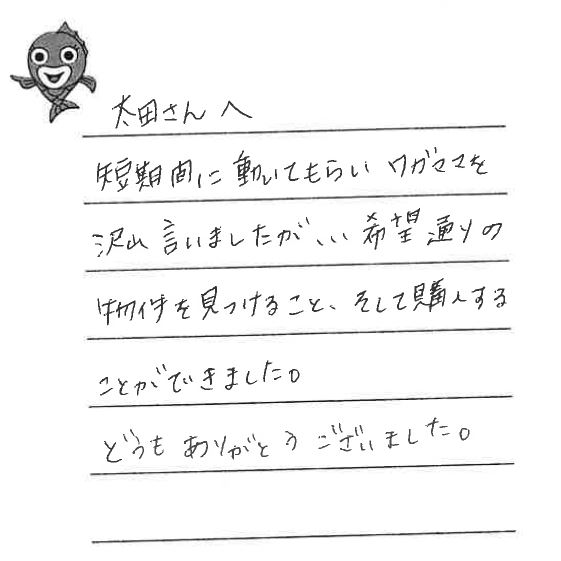 太田さんへ
短期間に動いてもらいワガママを
沢山言いましたが、、、希望通りの
物件を見つけること、そして購入する
ことができました。
どうもありがとうございました。